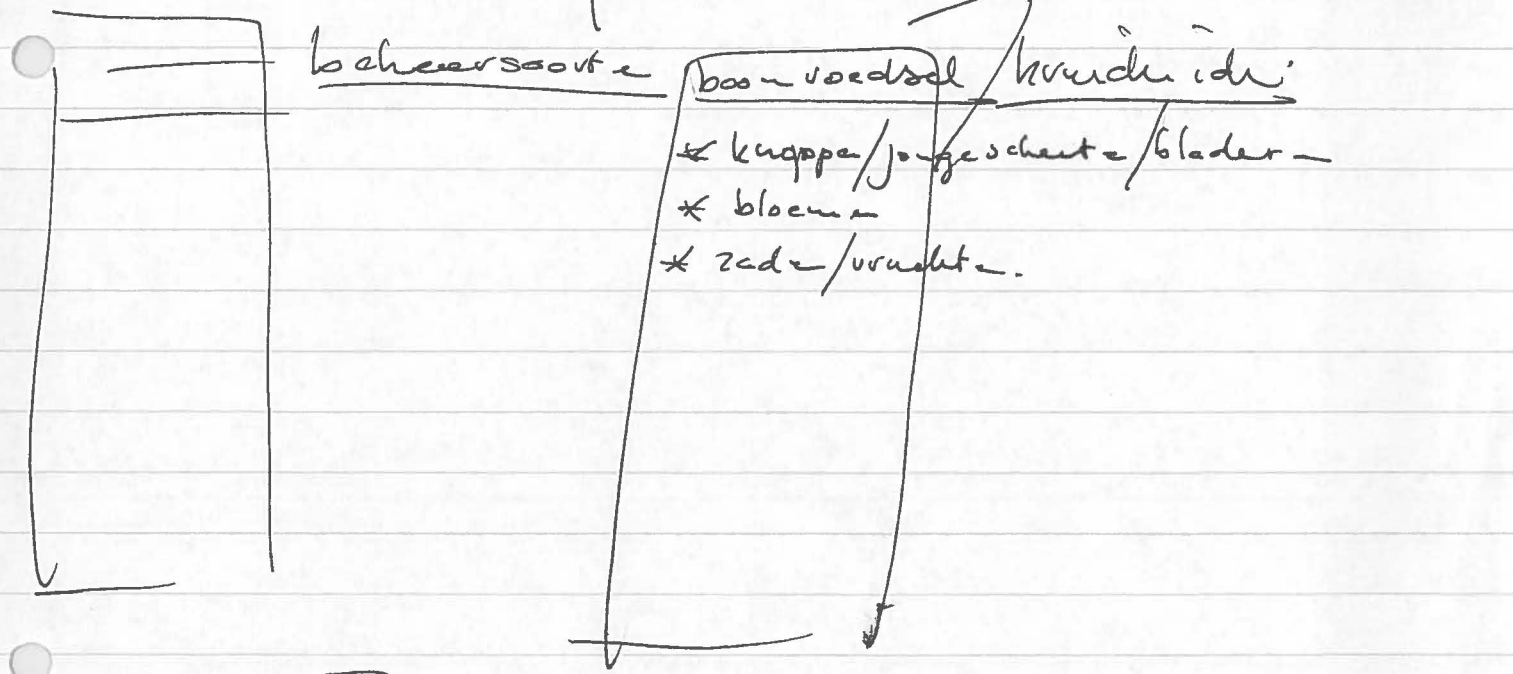 beheersoorten boomvoedsel / kruiden idem
* knoppen/jonge scheuten/bladeren
* bloemen
* zaden/vruchten.